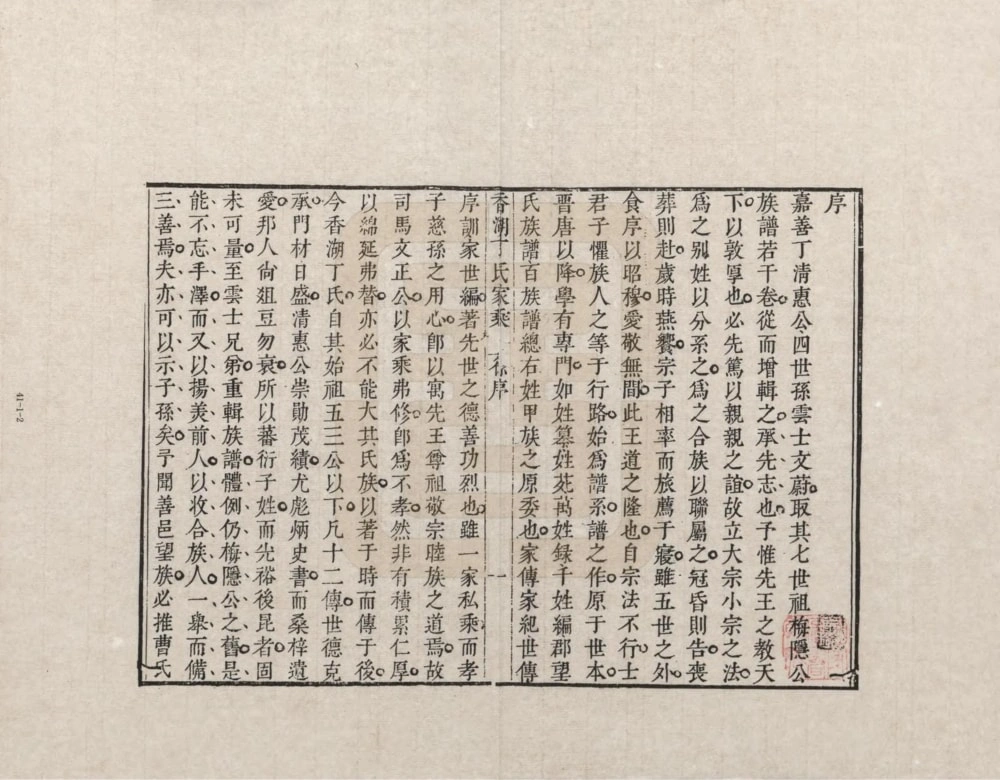 序
嘉善丁清惠公四世孫雲士文蔚取其七世祖梅隱公
族譜若干卷從而增輯之承先志也予惟先王之教天
下以敦厚也必先篤以親親之誼故立大宗小宗之法
為之別姓以分系之為之合族以聯屬之冠昏則告喪
葬則赴歲時燕饗宗子相率而旅薦于寢雖五世之外
食序以昭穆愛敬無間此王道之隆也自宗法不行士
君子懼族人之等于行路始為譜系譜之作原于世本
晋唐以降學有專門如姓纂姓苑萬姓録千姓編郡望
氏族譜百族譜總右姓甲族之原委也家傳家紀世傳
香湖丁氏家乘 序 一
序訓家世編著先世之德善功烈也雖一家私乘而孝
子慈孫之用心卽以寓先王尊祖敬宗睦族之道焉故
司馬文正公以家乘弗修卽為不孝然非有積累仁厚
以綿延弗替亦必不能大其氏族以著于時而傳于後
今香湖丁氏自其始祖五三公以下凡十二傳世德克
承門材日盛清惠公崇勛茂績尤彪炳史書而桑梓遺
愛邦人尙俎豆勿衰所以蕃衍子姓而光裕後昆者固
未可量至雲士兄弟重輯族譜體例仍梅隱公之舊是
能不忘手澤而又以揚美前人以收合族人一舉而備
三善焉夫亦可以示子孫矣予聞善邑望族必推曹氏
41-1-2